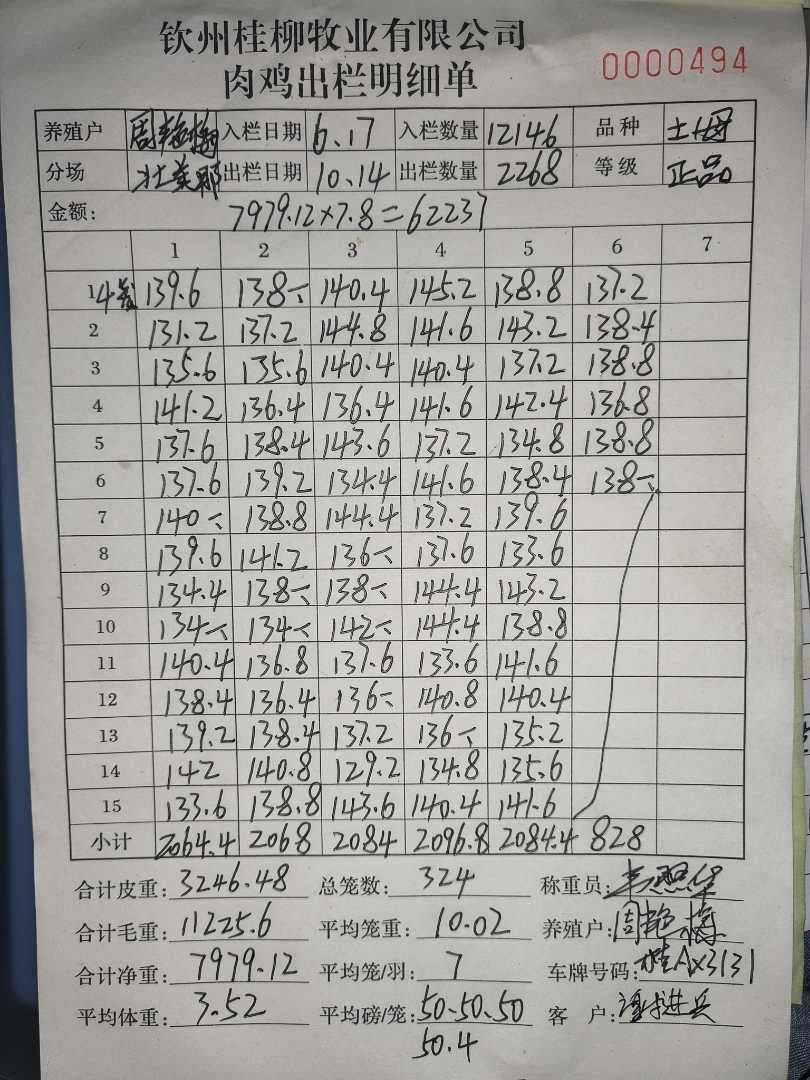 钦州桂柳牧业有限公司
肉鸡出栏明细单 0000494
养殖户 周艳梅 入栏日期 6.17 入栏数量 12146 品种
分场 出栏日期 10.14 出栏数量 2268 等级 正品
金额: 7979.12×7.8=62237
1 2 3 4 5 6 7
1 139.6 138 140.4 145.2 138.8 137.2
2 131.2 137.2 144.8 141.6 143.2 138.4
3 135.6 135.6 140.4 140.4 137.2 138.8
4 141.2 136.4 136.4 141.6 142.4 136.8
5 137.6 138.4 143.6 137.2 134.8 138.8
6 137.6 139.2 134.4 141.6 138.4 138
7 140 138.8 144.4 137.2 139.6
8 139.6 141.2 136 137.6 133.6
9 134.4 138 138 144.4 143.2
10 134 134 142 144.4 138.8
11 140.4 136.8 137.6 133.6 141.6
12 138.4 136.4 136 140.8 140.4
13 139.2 138.4 137.2 136 135.2
14 142 140.8 129.2 134.8 135.6
15 133.6 138.8 143.6 140.4 141.6
小计 2064.4 2068 2084 2096.8 2084.4 828
合计皮重: 3246.48 总笼数: 324 称重员:
合计毛重: 11225.6 平均笼重: 10.02 养殖户: 周艳梅
合计净重: 7979.12 平均笼/羽: 7 车牌号码: 桂AX3131
平均体重: 3.52 平均磅/笼: 50.50.50 客 户:
50.4